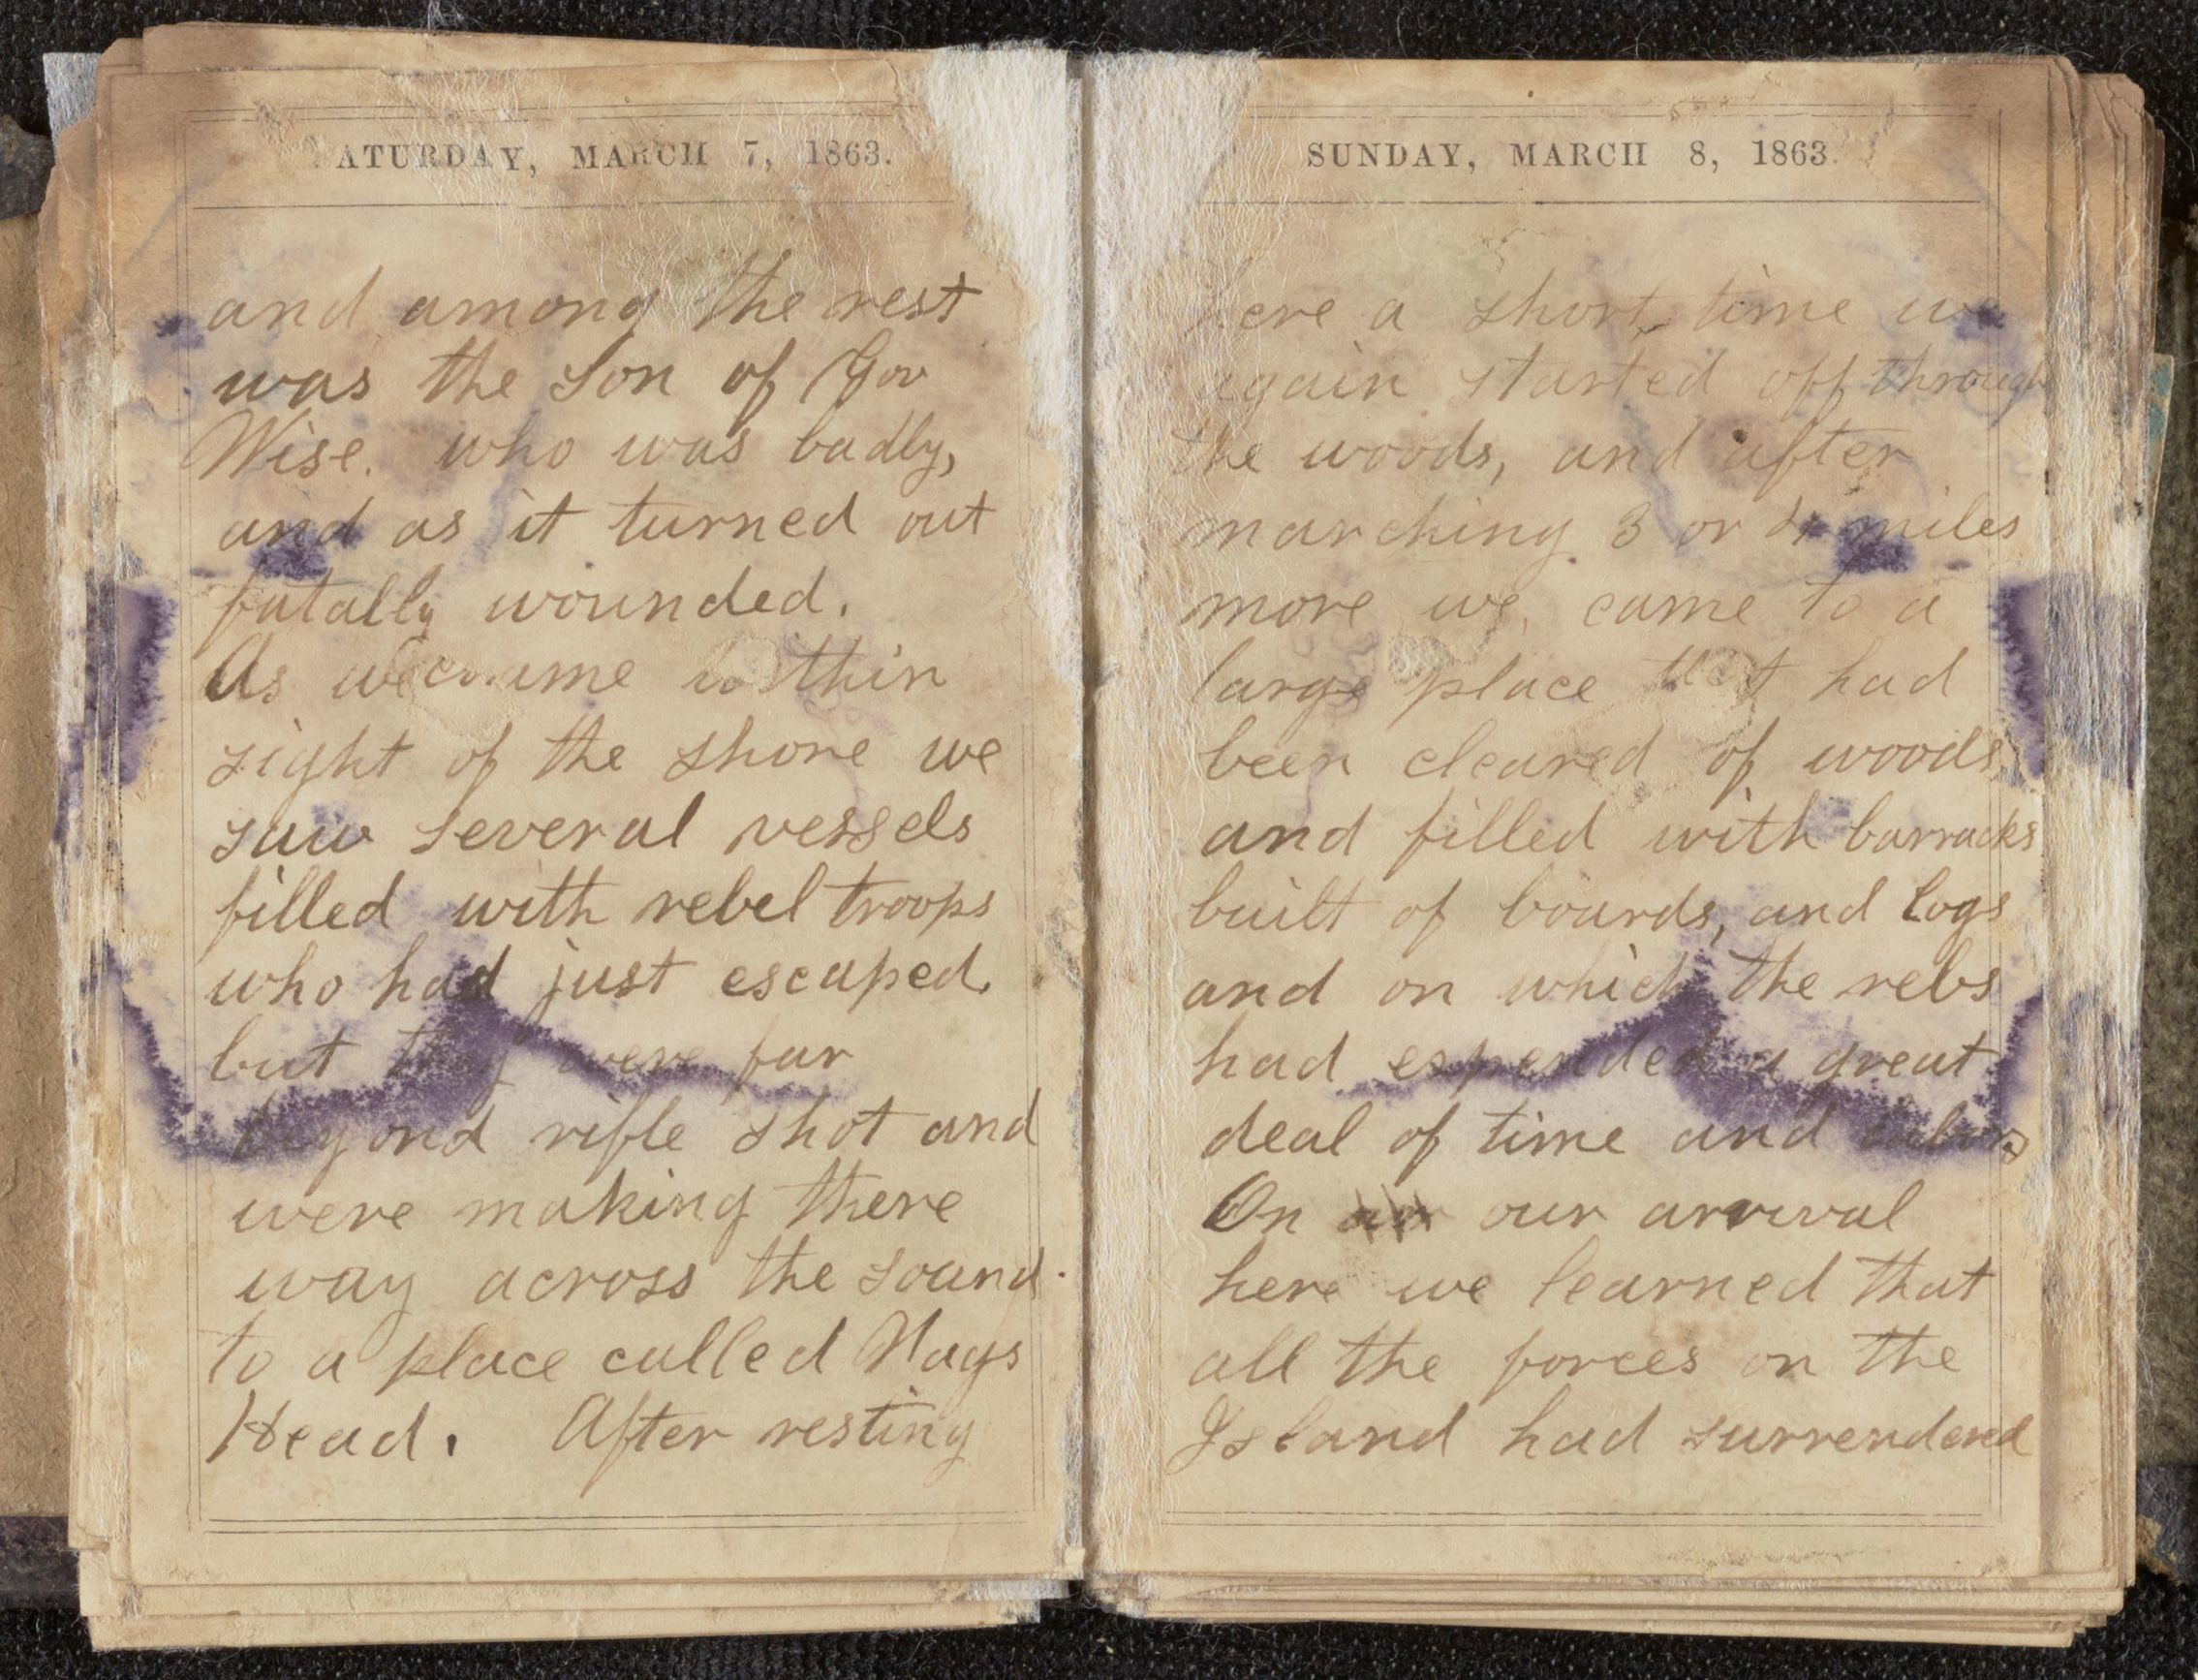 SATURDAY, MARCH 7, 1863.
and among the rest
was the Son of Gov
Wise. who was badly,
and as it turned out
fatally wounded.
As we came within
sight of the shore we
saw several vessels
filled with rebel troops
who had just escaped.
but they were far
beyond rifle shot and
were making there
way across the sound.
to a place called Nags
Head. After resting
SUNDAY, MARCH 8, 1863.
here a short time we
again started off through
the woods, and after
marching 3 or 4 miles
more we came to a
large place that had
been cleared of woods
and filled with barracks
built of boards, and logs
and on which the rebs
had expended a great
deal of time and
On our arrival
here we learned that
all the forces on the
Island had surrendered